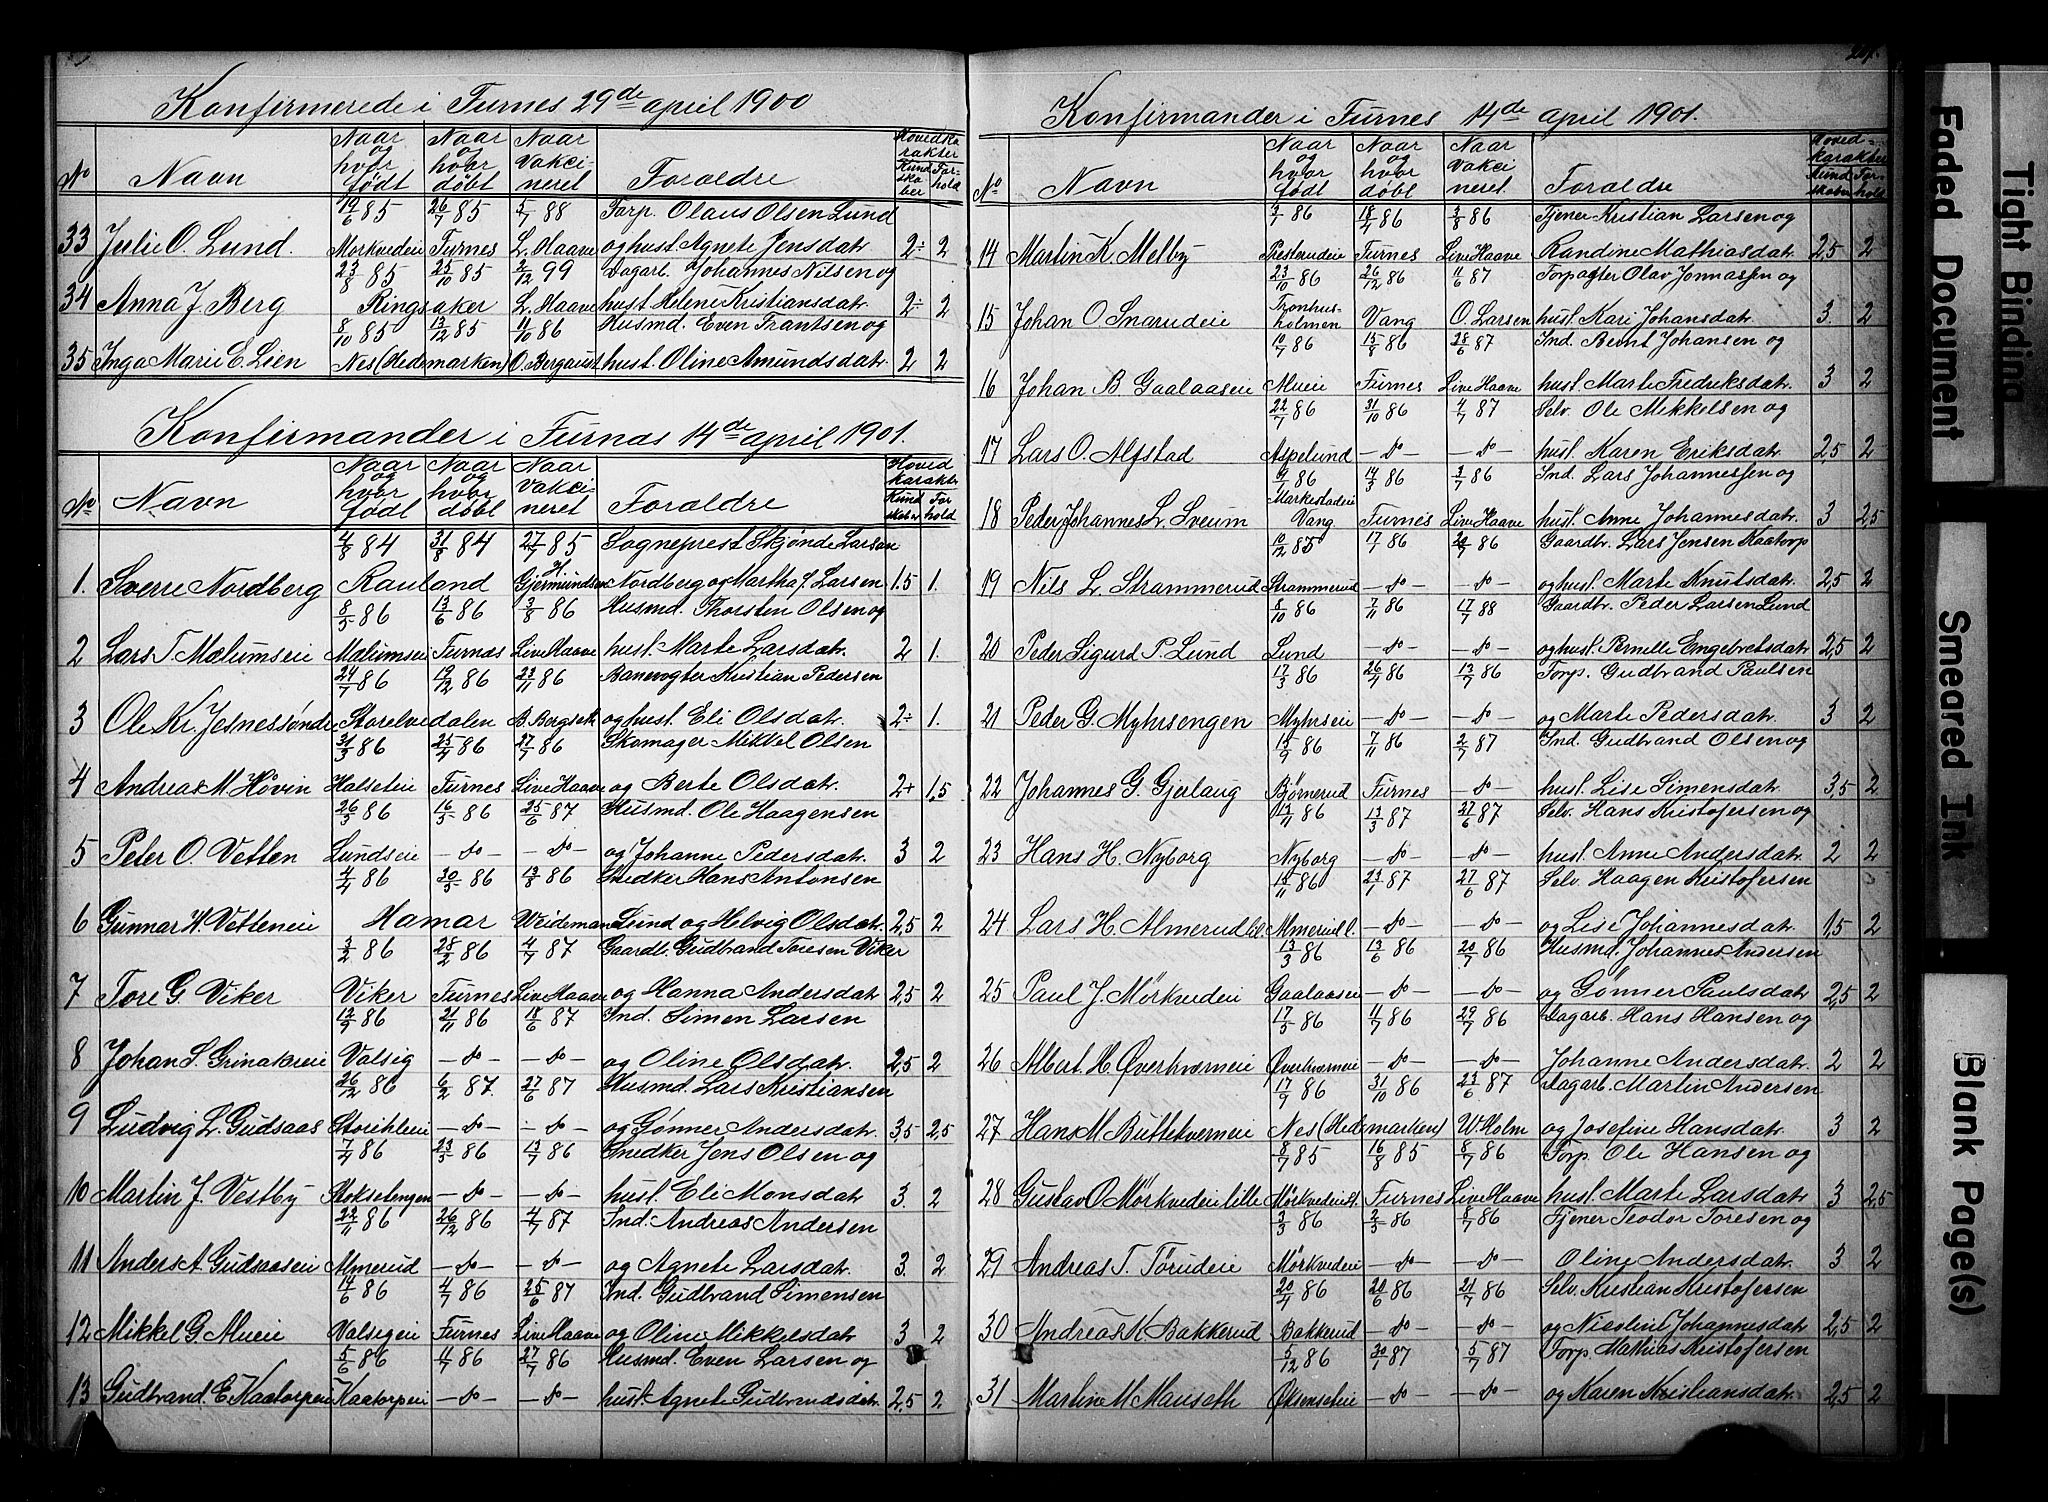 Konfirmerede i Furnes 29de april 1900
No Navn Naar og hvor født Naar og hvor døbt Naar Vakcineret Foraldre Hovedkarakter Kundskaber Forhold
19/6 85 26/7 85 5/7 88 Torp. Olaus Olsen Lund
33 Julie O. Lund. Morkveeien Furnes L. Haave og hust. Agnete Jensdatr. 2÷ 2
23/8 85 25/10 85 2/12 99 Dagarb. Johannes Nilsen og
34 Anna J. Berg Ringsaker L. Haave hust. Helene Kristiansdatr. 2÷ 2
8/10 85 13/12 85 11/10 86 Husmd. Even Frantsen og
35 Inga Marie E. Lien Nes (Hedemarken) O. Bergaust hust. Oline Amundsdatr. 2 2
Konfirmander i Furnas 14de april 1901.
No Navn Naar og hvor født Naar og hvor døbt Naar Vakcineret Foraldre Hovedkarakter Kundskaber Forhold
4/8 84 31/8 84 27/7 85 Sogneprest Skjønde Larsen
1. Sverre Nordberg Rauland H. Gjermundsen Nordberg og Martha J. Larsen 1.5 1.
8/5 86 13/6 86 3/8 86 Husmd. Thorsten Olsen og
2 Lars T. Mælumseie Mælumseie Furnas Live Haave hust. Marte Larsdatr. 2 1.
24/7 86 19/12 86 23/11 86 Banevogter Kristian Pedersen
3 Ole Kr. Jesnessøndre Storelvedalen B. Bergseth og hust. Eli Olsdatr. 2÷ 1.
31/3 86 25/4 86 27/7 86 Skomager Mikkel Olsen
4 Andreas M. Hovin Halseteie Furnes Live Haave og Berte Olsdatr. 2+ 1,5
26/3 86 16/5 86 25/6 87 Husmd. Ole Haagensen
5 Peter O. Vetten Lundseie —do— —do— og Johanne Pedersdatr. 3 2
4/4 86 30/5 86 13/8 86 Snedker Hans Antonsen
6 Gunnar H. Vetteneie Hamar Weideman Lund og Helvig Olsdatr. 2,5 2
3/2 86 28/2 86 4/7 87 Gaardbr. Gudbrand Toresen Viker
7 Tore G Viker Viker Furnes Live Haave og Hanna Andersdatr. 2,5 2
12/9 86 21/11 86 18/6 87 Ind. Simen Larsen
8 Johan S. Grinakreie Valsig —do— —do— og Oline Olsdatr. 2,5 2
26/12 86 6/2 87. 27/6 87 Husmd. Lars Kristiansen
9 Ludvig L. Gudsaas Storihleeie —do— —do— og Gønner Andersdatr. 3,5 2,5
7/4 86 23/5 86 13/7 86 Snedker Jens Olsen og
10 Martin J. Vestby Stoksetengen —do— —do— hust. Eli Monsdatr. 3. 2
22/11 86 26/12 86 4/7 87 Ind. Andreas Andersen
11 Anders A. Gudsaaseie Almerud —do— —do— og Agnete Larsdatr. 3. 2
14/6 86 4/7 86 25/6 87 Ind. Gudbrand Simensen
12 Mikkel G. Alueie Valsigeie Furnes Live Haave og Oline Mikkelsdatr. 3. 2
5/6 86 11/7 86 27/7 86 Husmd. Even Larsen og
13 Gudbrand. E. Kaatorpeie Kaatorpeie —do— —do— hust. Agnete Gudbrandsdatr. 2,5 2
Konfirmander i Furnes 14de april 1901.
No Navn Naar og hvor født Naar og hvor døbt Naar Vakcineret Foraldre Hovedkarakter Kundskaber Forhold
86 18/4 86 3/8 86 Tjener Kristian Larsen og
14 Martin K. Melby Presterudeie Furnes Live Haave Randine Mathiasdatr. 2,5 2
23/10 86 26/12 86 11/6 87 Torpagter Olav Jonnassen og
15 Johan O. Snarudeie Tronhusholmen Vang O. Larsen hust. Kari Johansdatr. 3. 2
10/7 86 15/8 86 28/6 87 Ind. Bernt Johansen og
16 Johan B. Gaalaaseie Alueie Furnes Live Haave hust. Marte Fredriksdatr. 3 2
22/7 86 31/10 86 4/7 87 Selv. Ole Mikkelsen og
17 Lars O. Alfstad Aspelund —do— —do— hust. Karen Eriksdatr. 2,5 2
9/1 86 14/3 86 3/7 86 Ind. Lars Johannessen og
18 Peder Johannes L. Sveum Markestadeie Vang Furnes Live Haave hust. Anne Johannesdatr. 3 2,5
10/12 85 17/1 86 20/7 86 Gaardbr. Lars Jensen Kaatorp
19 Nils L. Strammerud Strammerud —do— —do— og hust. Marte Knutsdatr. 2,5 2
8/10 86 7/11 86 17/7 88 Gaardbr. Peder Larsen Lund
20 Peder Sigurd P. Lund Lund —do— —do— og hust. Pernille Engebretsdatr. 2,5 2
12/3 86 26/7 86 13/7 86 Torp. Gudbrand Paulsen
21 Peder G. Myhrsengen Myhrseie —do— —do— og Marte Pedersdatr. 3 2
13/9 86 7/11 86 2/7 87 Ind. Gudbrand Olsen og
22 Johannes G. Gjerlaug Bjørnerud Furnes —do— hust. Lise Simensdatr. 3,5 2
12/11 86 13/3 87 27/6 87 Selv. Hans Kristofersen og
23 Hans H. Nyborg Nyborg —do— —do— hust. Anne Andersdatr. 2 2
18/11 86 23/1 87 27/6 87 Selv. Haagen Kristofersen
24 Lars H. Almerud Almerud l. —do— —do— og Lise Johannesdatr. 1,5 2
13/3 86 13/6 86 20/7 86 Husmd. Johannes Andersen
25 Paul J. Mörkveeie Gaalaaseie —do— —do— og Gønner Paulsdatr. 2,5 2
17/5 86 11/7 86 29/7 86 Dagarb. Hans Hansen og
26 Albat. H. Øverkværneie Øverkværneie —do— —do— Johanne Andersdatr. 2 2
17/9 86 31/10 86 23/6 87 Dagarb. Martin Andersen
27 Hans M. Buttekverneie Nes (Hedemarken) W. Holm og Josefine Hansdatr. 3 2
8/7 85 16/8 85 8/7 86 Torp. Ole Hansen og
28 Gustav O. Mörkvedeie lille Mörkvedeie l. Furnes Live Haave hust. Marte Larsdatr. 3 2,5
3/3 86 2/5 86 8/7 86 Tjener Teodor Toresen og
29 Andreas T. Törudeie Mörkvedeie —do— —do— Oline Andersdatr. 3 2
20/4 86 20/6 86 21/7 86 Selv. Kristian Kristofersen
30 Andreas K. Bakkerud Bakkerud —do— —do— og Nicoline Johannesdatr. 2,5 2
5/12 86 30/1 87 5/7 87 Torp. Mathias Kristofersen
31 Martine M. Mauseth Øksenseteie —do— —do— og Karen Kristiansdatr. 2,5 2
Tight Binding
Faded Document
Smeared Ink
Blank Page(s)